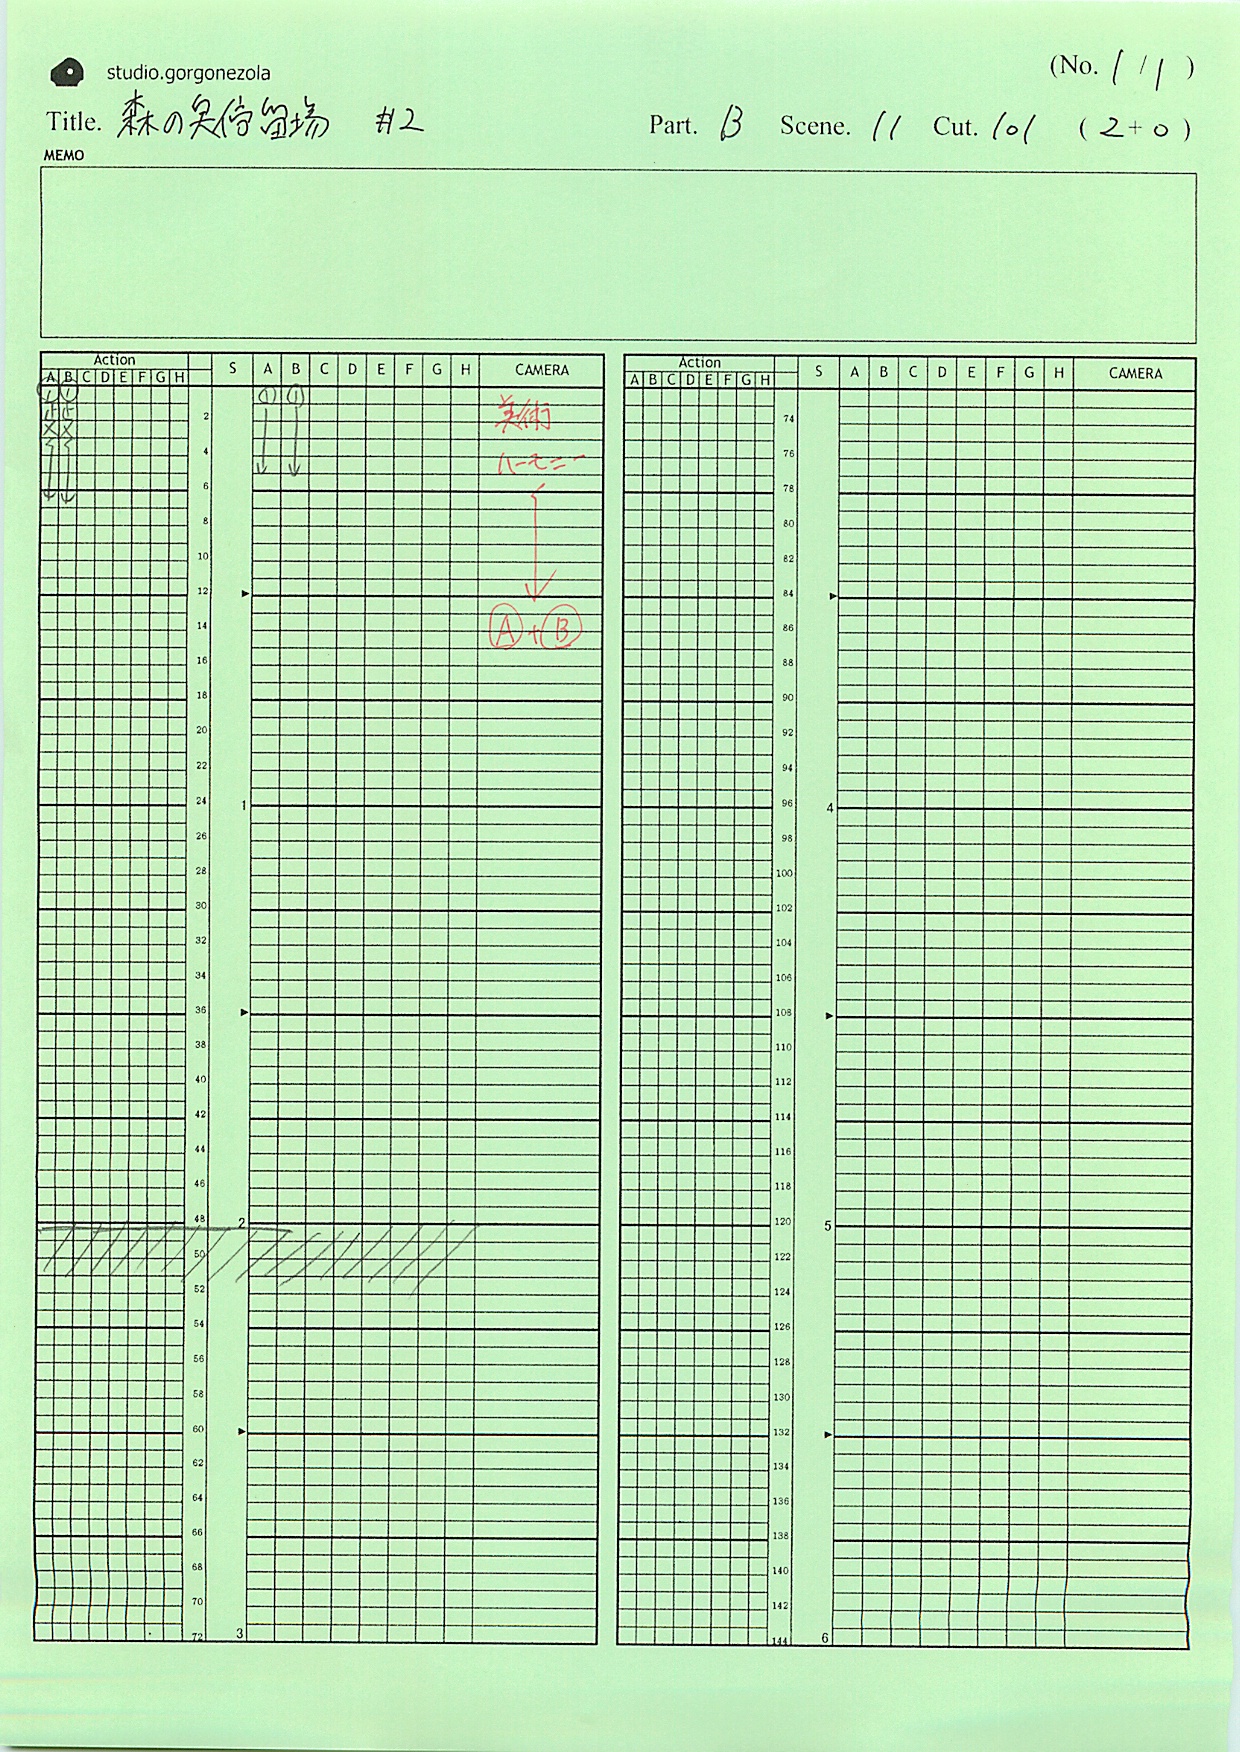 studio.gorgonezola
(No. 1 / 1 )
Title. 森の奥停留場 #2 Part. B Scene. 11 Cut. 101 ( 2 + 0 )
MEMO
Action
A B C D E F G H S A B C D E F G H CAMERA
1 1 ① ①
2 美術
× ×
4 ハーモニー
6
8
10
12
14 Ⓐ+Ⓑ
16
18
20
22
24 1
26
28
30
32
34
36
38
40
42
44
46
48 2
50
52
54
56
58
60
62
64
66
68
70
72 3
Action
A B C D E F G H S A B C D E F G H CAMERA
74
76
78
80
82
84
86
88
90
92
94
96 4
98
100
102
104
106
108
110
112
114
116
118
120 5
122
124
126
128
130
132
134
136
138
140
142
144 6